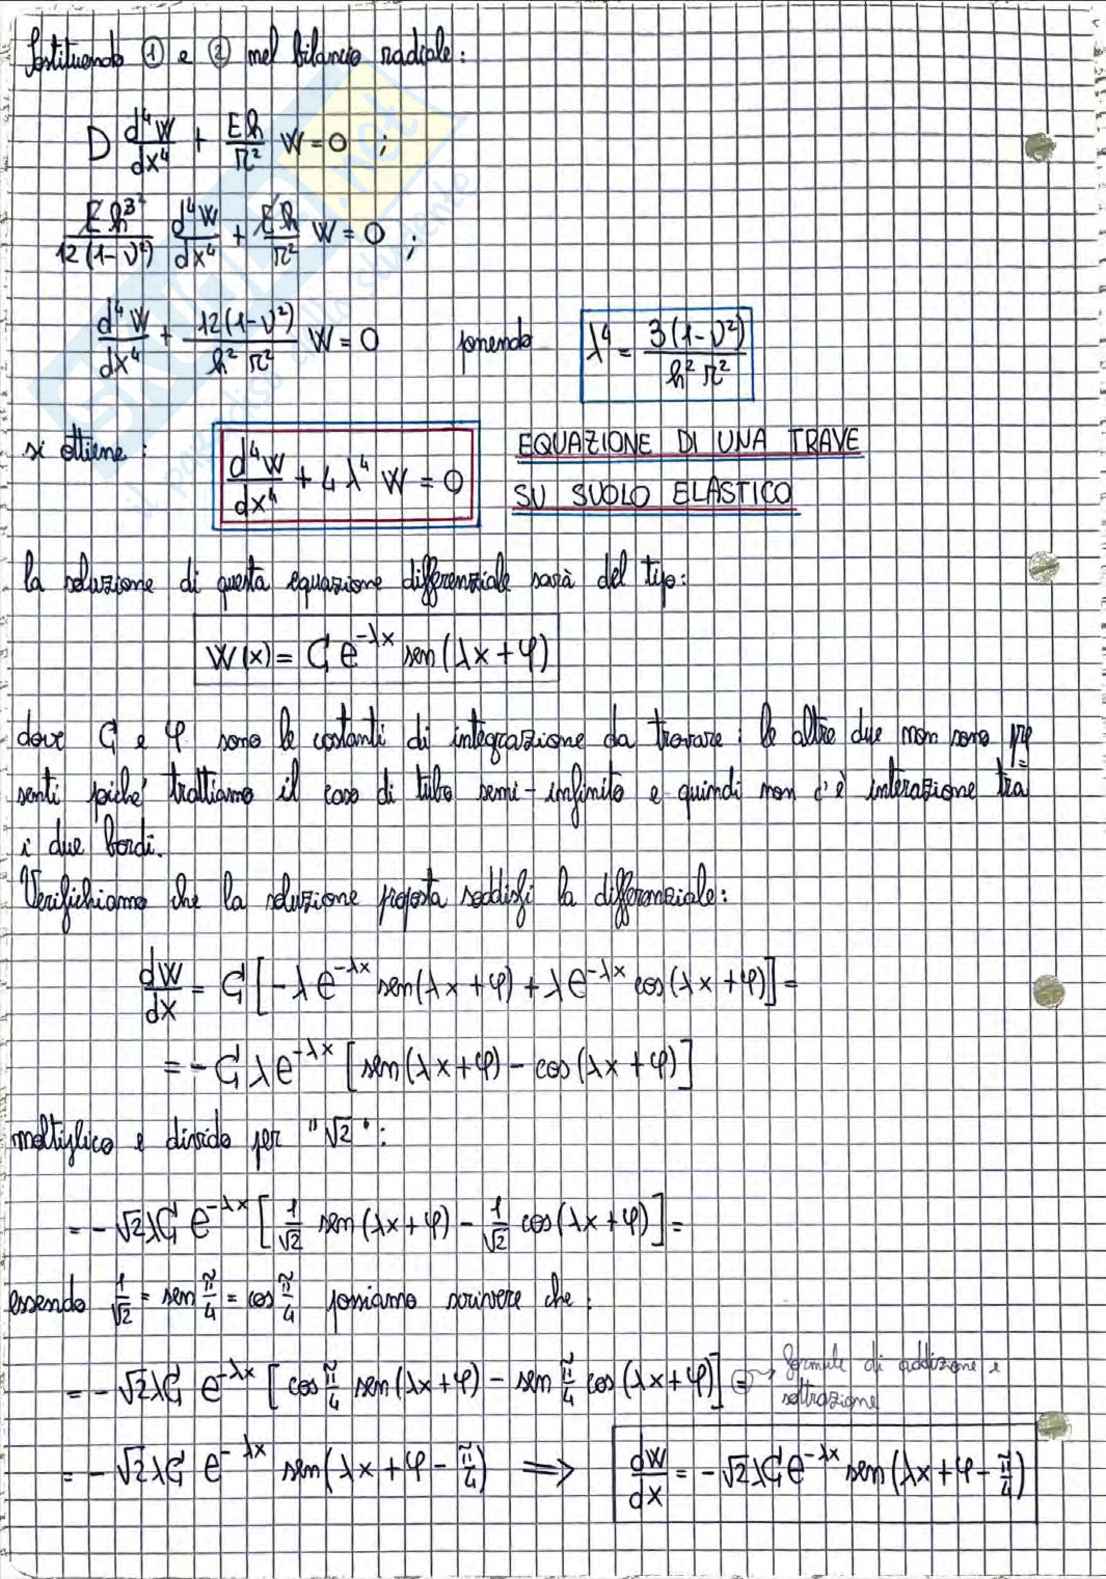 Sostituendo ① e ② nel bilancio radiale:
D d⁴W/dx⁴ + Eh/r² W = 0 ;
Eh³/12(1-ν²) d⁴W/dx⁴ + Eh/r² W = 0 ;
d⁴W/dx⁴ + 12(1-ν²)/h² r² W = 0 ponendo λ⁴ = 3(1-ν²)/h² r²
si ottiene : d⁴W/dx⁴ + 4λ⁴ W = 0 EQUAZIONE DI UNA TRAVE
SU SUOLO ELASTICO
la soluzione di questa equazione differenziale sarà del tipo:
W(x) = C e^-λx sen(λx+φ)
dove C e φ sono le costanti di integrazione da trovare; le altre due non sono pre
senti poiché trattiamo il caso di tubo semi-infinito e quindi non c'è interazione tra
i due bordi.
Verifichiamo che la soluzione proposta soddisfi la differenziale:
dW/dx = C [-λe^-λx sen(λx+φ) + λe^-λx cos(λx+φ)] =
= -Cλe^-λx [sen(λx+φ) - cos(λx+φ)]
moltiplico e divido per "√2":
= -√2λC e^-λx [1/√2 sen(λx+φ) - 1/√2 cos(λx+φ)] =
essendo 1/√2 = sen π/4 = cos π/4 possiamo scrivere che:
= -√2λC e^-λx [cos π/4 sen(λx+φ) - sen π/4 cos(λx+φ)] = → formule di addizione e
sottrazione
= -√2λC e^-λx sen(λx+φ-π/4) ⟹ dW/dx = -√2λCe^-λx sen(λx+φ-π/4)